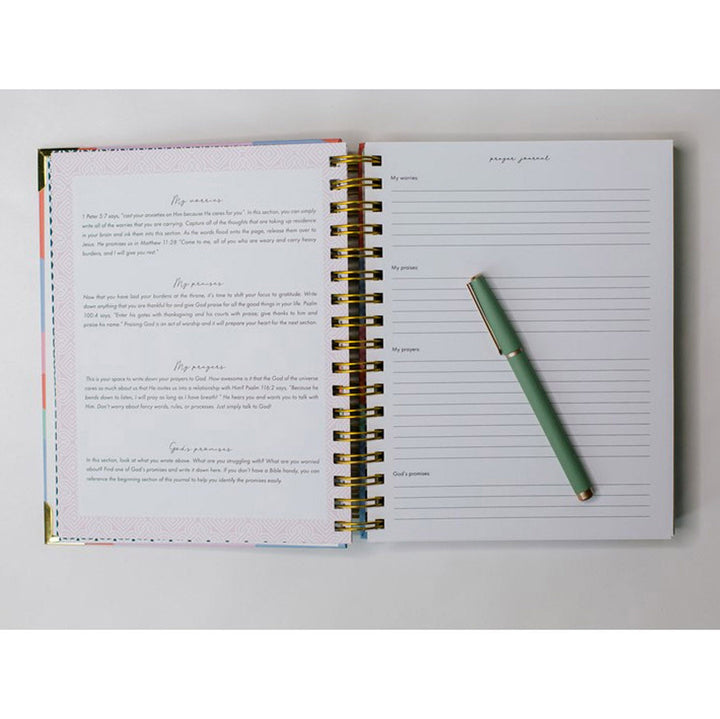 My worries
1 Peter 5:7 says, "cast your anxieties on Him because He cares for you". In this section, you can simply
write all of the worries that you are carrying. Capture all of the thoughts that are taking up residence
in your brain and ink them into this section. As the words flood onto the page, release them over to
Jesus. He promises us in Matthew 11:28 "Come to me, all of you who are weary and carry heavy
burdens, and I will give you rest."
My praises
Now that you have laid your burdens at the throne, it's time to shift your focus to gratitude. Write
down anything that you are thankful for and give God praise for all the good things in your life. Psalm
100:4 says, "Enter his gates with thanksgiving and his courts with praise; give thanks to him and
praise his name." Praising God is an act of worship and it will prepare your heart for the next section.
My prayers
This is your space to write down your prayers to God. How awesome is it that the God of the universe
cares so much about us that He invites us into a relationship with Him? Psalm 116:2 says, "Because he
bends down to listen, I will pray as long as I have breath!" He hears you and wants you to talk with
Him. Don't worry about fancy words, rules, or processes. Just simply talk to God!
God's promises
In this section, look at what you wrote above. What are you struggling with? What are you worried
about? Find one of God's promises and write it down here. If you don't have a Bible handy, you can
reference the beginning section of this journal to help you identify the promises easily.
prayer journal
My worries:
My praises:
My prayers:
God's promises: